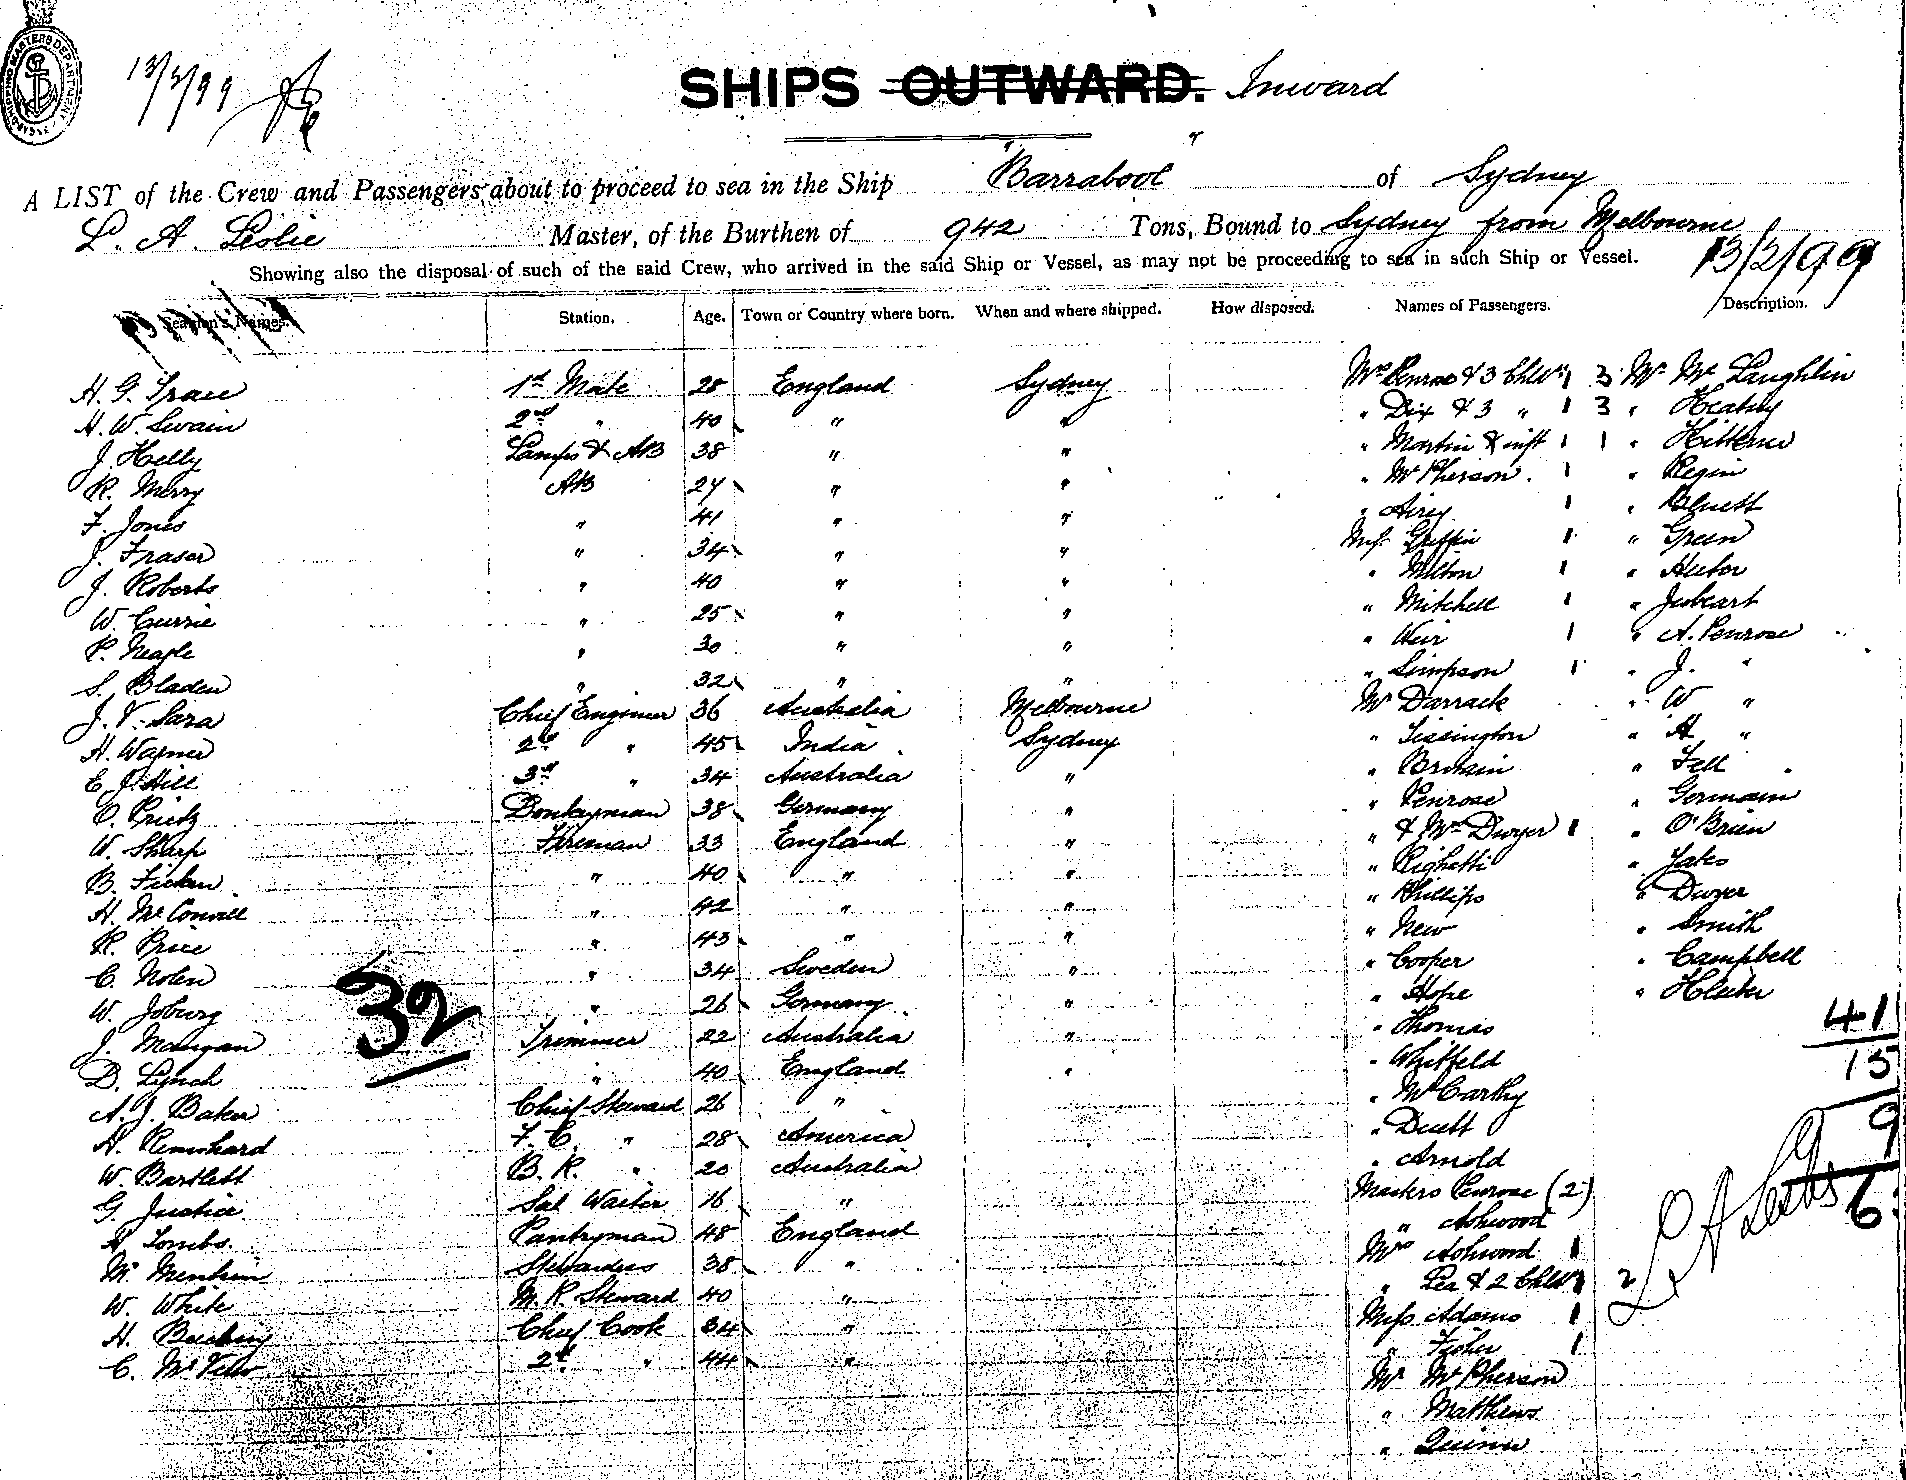 SHIPPING MASTERS DEPARTMENT
13/2/99
SHIPS OUTWARD. Inward
A LIST of the Crew and Passengers about to proceed to sea in the Ship "Barrabool" of Sydney
L. A. Leslie Master, of the Burthen of 942 Tons, Bound to Sydney from Melbourne
Showing also the disposal of such of the said Crew, who arrived in the said Ship or Vessel, as may not be proceeding to sea in such Ship or Vessel. 13/2/99
Seamen's Names. Station. Age. Town or Country where born. When and where shipped. How disposed. Names of Passengers. Description.
H. G. Trace 1st Mate 28 England Sydney Mrs Penrose & 3 Chldn 1 3 Mr McLaughlin
H. W. Swain 2nd " 40 " " " Dix & 3 " 1 3 " Heatly
J. Helly Lamps & AB 38 " " " Martin & inft 1 1 "
R. Merry AB 24 " " " McPherson 1 "
F. Jones " 41 " " " Airey 1 " Bluett
J. Fraser " 34 " " Miss Griffin 1 " Green
J. Roberts " 40 " " " Milton 1 "
W. Currie " 25 " " " Mitchell 1 " Jubeart
P. Neagle " 30 " " " Weir 1 " A. Penrose
S. Bladen " 32 " " " Simpson 1 " J. "
J. V. Sara Chief Engineer 36 Australia Melbourne Mr Darrack " W "
H. Warner 2nd " 45 India Sydney " Tissington " H "
E. J. Hill 3rd " 34 Australia " " " Fell
O. Prietz Donkeyman 38 Germany " " Penrose " Germain
W. Sharp Fireman 33 England " " & Mrs Dwyer 1 " O'Brien
B. " 40 " " " Righetti " Yates
H. McConvill " 42 " " " Phillips " Dwyer
R. Price " 43 " " " New " Smith
C. Nolen " 34 Sweden " " Cooper " Campbell
W. Joburg " 26 Germany " " Hope "
J. Mangan Trimmer 22 Australia " " Thomas 41
D. Lynch " 40 England " " Whitfeld 15
32
A. J. Baker Chief Steward 26 " " McCarthy
H. F. C. " 28 America " Duett 9
W. Bartlett B. R. " 20 Australia " Arnold
G. Justice Sal Waiter 16 " Masters Penrose (2)
H Tombs Pantryman 48 England " Ashwood 6
M. Stewardess 38 " Mrs Ashwood 1
W. White M. R. Steward 40 " " Lea & 2 Chldn 1 2
H. Chief Cook 34 " Miss Adams 1
C. 2nd " 44 " " Fisher 1
Mr McPherson
" Matthews
" Quinn
L A Leslie